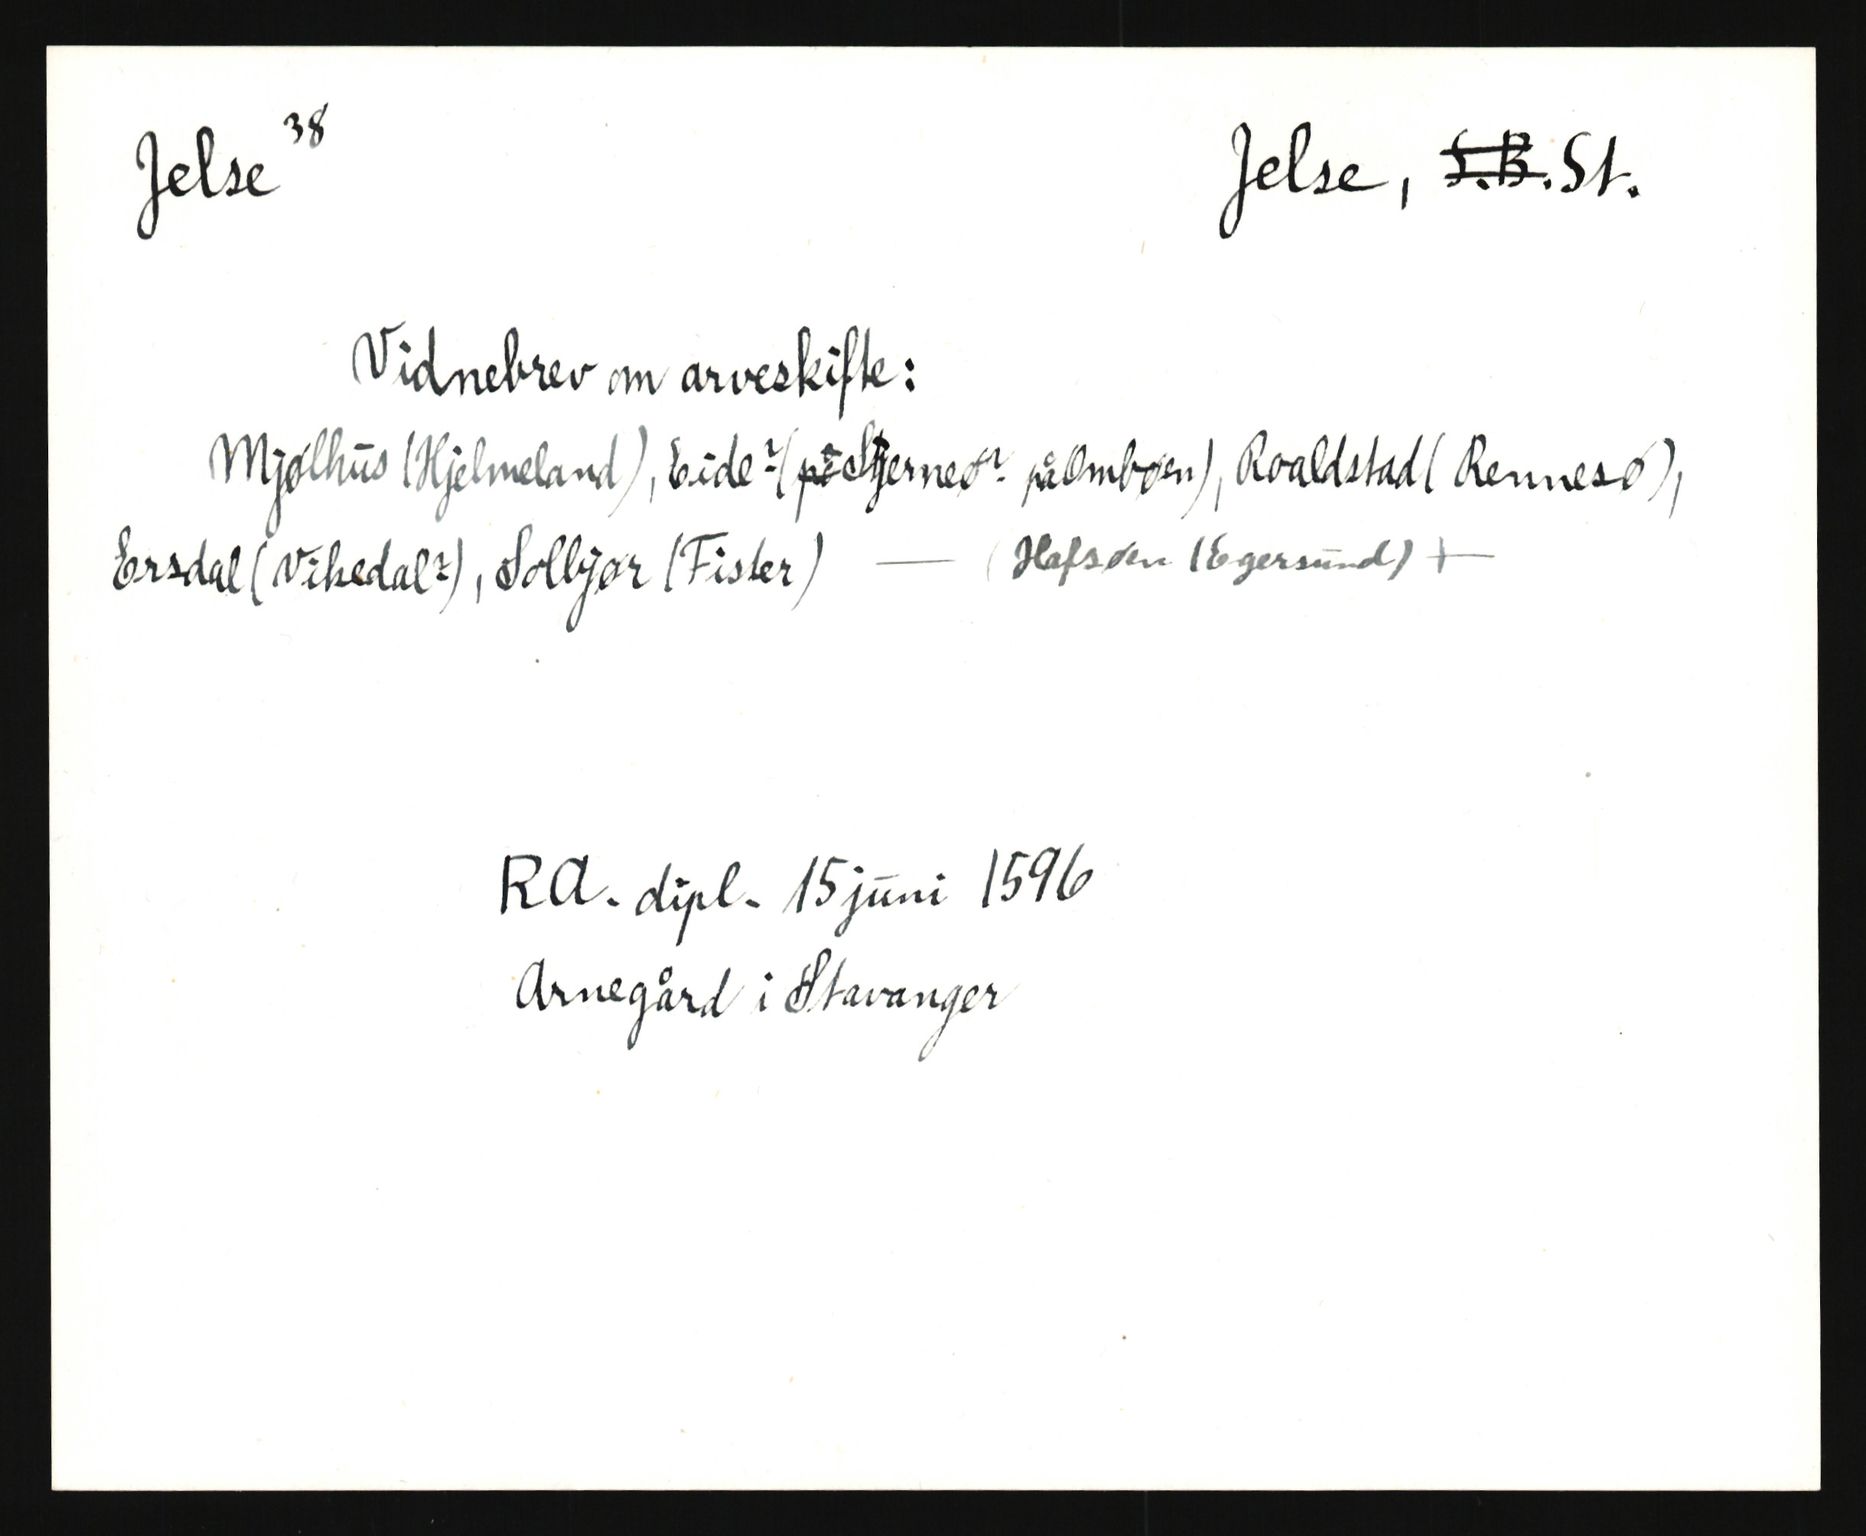 Jelse 38
Jelse, S.B. St.
Vidnebrev om arveskifte:
Mjølhus (Hjelmeland), Eide? ( på Ombøen), Roaldstad (Rennesø),
Ersdal (Vikedal?), Solbjør (Fister) — (Hafsøen (Egersund) +—
RA. dipl. 15 juni 1596
Arnegård i Stavanger